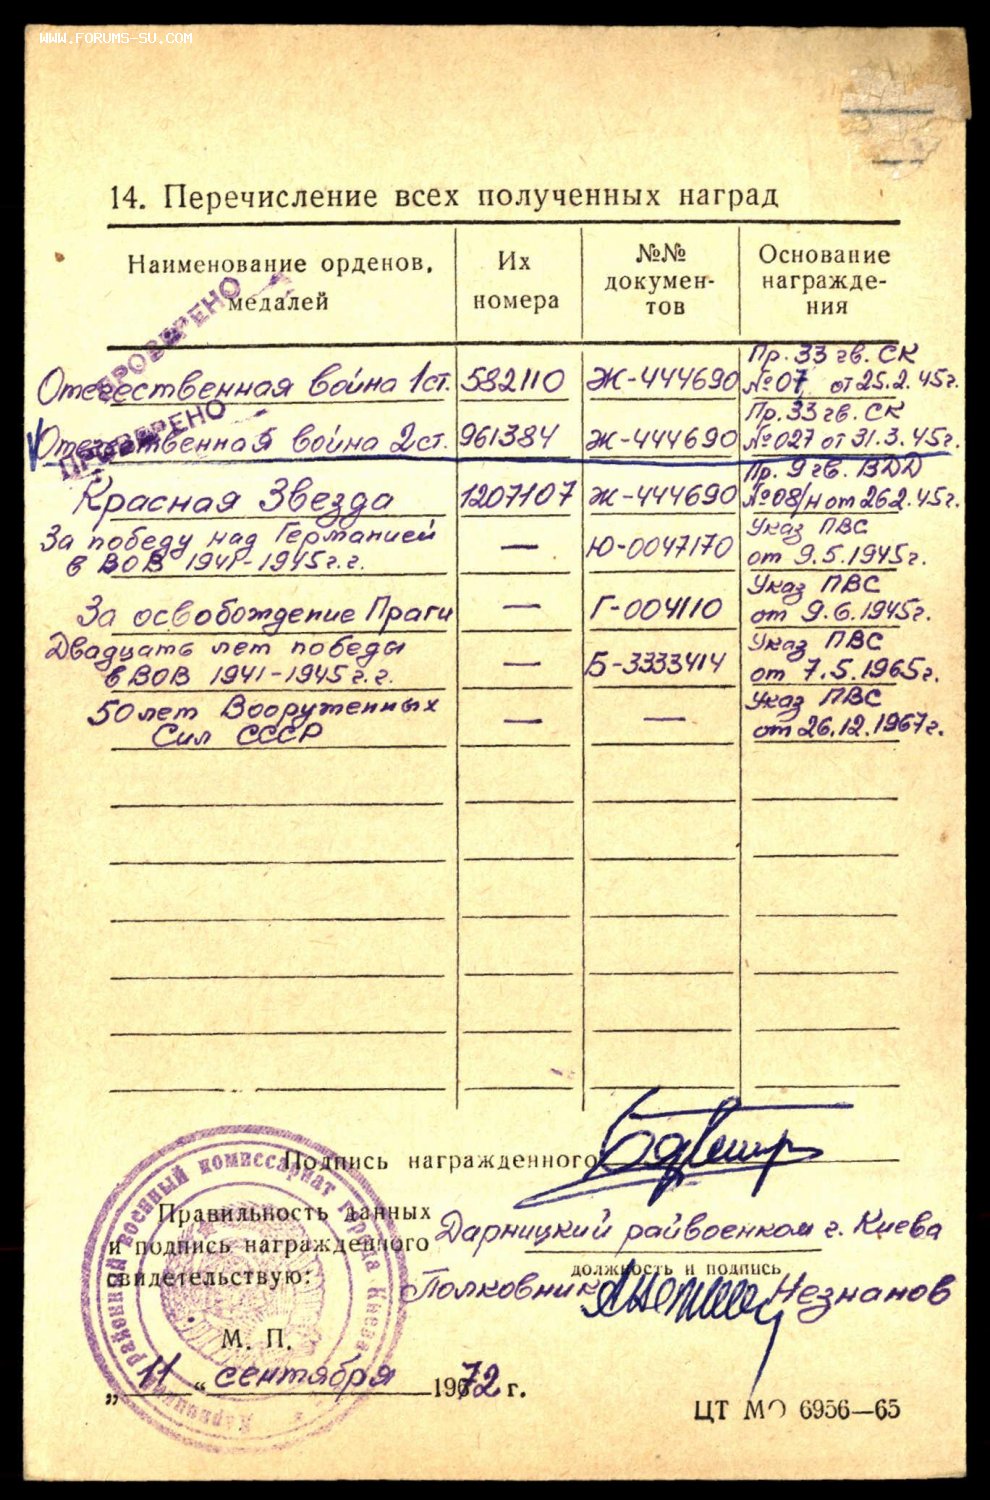 WWW.FORUMS-SU.COM
14. Перечисление всех полученных наград
Наименование орденов, медалей
Их номера
№№ докумен-тов
Основание награжде-ния
ПРОВЕРЕНО
ПРОВЕРЕНО
Отечественная война 1 ст. 582110 Ж-444690 Пр. 33 гв. СК №07 от 25.2.45г.
Отечественная война 2 ст. 961384 Ж-444690 Пр. 33 гв. СК №027 от 31.3.45г.
Красная Звезда 1207107 Ж-444690 Пр. 9 гв. ВДД №08/н от 26.2.45г.
За победу над Германией в ВОВ 1941-1945г.г. — Ю-0047170 Указ ПВС от 9.5.1945г.
За освобождение Праги — Г-004110 Указ ПВС от 9.6.1945г.
Двадцать лет победы в ВОВ 1941-1945г.г. — Б-3333414 Указ ПВС от 7.5.1965г.
50 лет Вооруженных Сил СССР — — Указ ПВС от 26.12.1967г.
Подпись награжденного
Правильность данных
и подпись награжденного
свидетельствую:
Дарницкий райвоенком г. Киева
должность и подпись
Полковник Незнанов
М. П.
„11“ сентября 1972 г.
ЦТ МО 6956—65
Дарницкий районный военный комиссариат города Киева